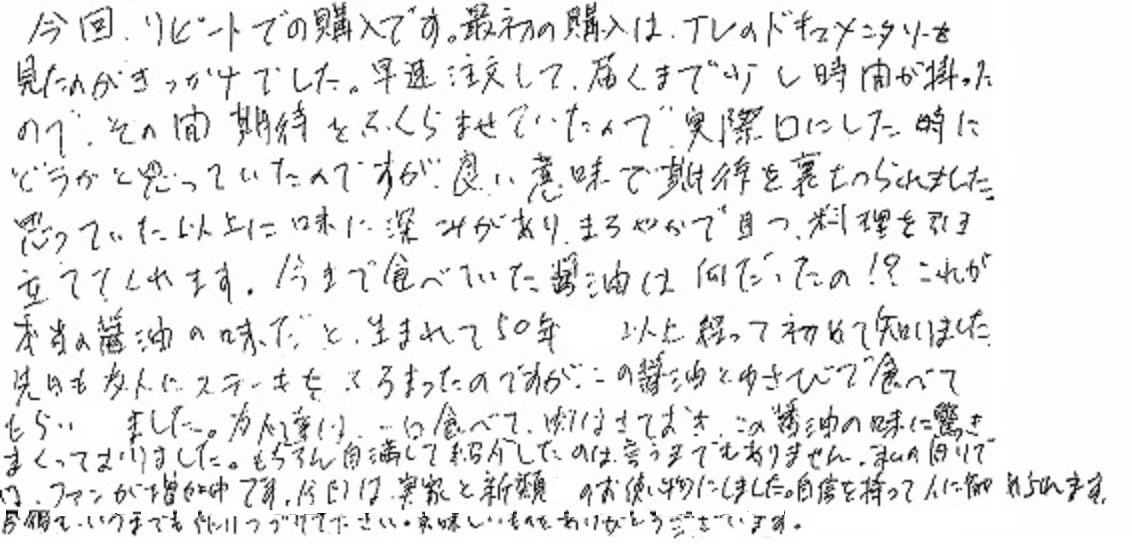 今回、リピートでの購入です。最初の購入は、TVのドキュメンタリーを
見たのがきっかけでした。早速注文して、届くまで少し時間が掛った
ので、その間期待をふくらませていたので、実際口にした時に
どうかと思っていたのですが、良い意味で期待を裏切られました。
思っていた以上に味に深みがあり、まろやかで且つ、料理を引き
立ててくれます。今まで食べていた醤油は何だったの!?これが
本当の醤油の味だと、生まれて50年 以上経って初めて知りました
先日も友人にステーキをふるまったのですが、この醤油とわさびで食べて
もらい ました。友人達は、一口食べて、肉はさておき、この醤油の味に驚き
まくっておりました。もちろん自満して紹介したのは言うまでもありません。私の周りで
は、ファンが増加中です。今回は、実家と親類 のお使い物にしました。自信を持って人に勧められます。
いつまでも作りつづけて下さい。美味しいものをありがとうございます。